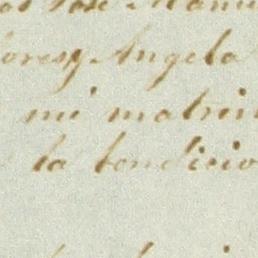 José Manu
ores y Angela
mi matrim
la bendicio